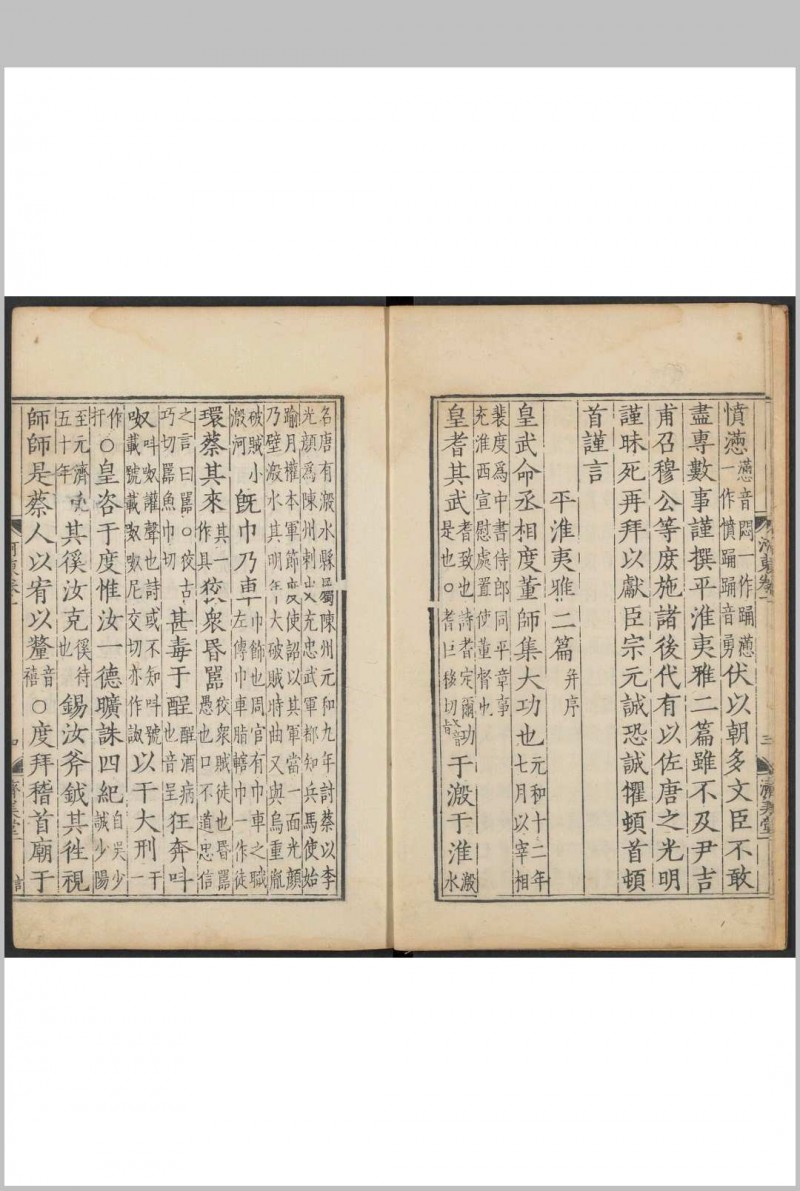 憤懣懣音悶一作踊懣一作憤踊踊音勇伏以朝多文臣不敢
盡專數事謹撰平淮夷雅二篇雖不及尹吉
甫召穆公等庶施諸後代有以佐唐之光明
謹昧死再拜以獻臣宗元誠恐誠懼頓首頓
首謹言
平淮夷雅二篇并序
皇武命丞相度董師集大功也元和十二年七月以宰相
裴度爲中書侍郎同平章事充淮西宣慰處置使董督也
皇耆其武耆致也詩耆定爾功是也○耆巨移切又音于溵于淮溵水
名唐有溵水縣屬陳州元和九年討蔡以李光顔爲陳州刺史充忠武軍都知兵馬使始
踰月權本軍節度使詔以其軍當一面光顔乃壁溵水其明年大破賊時曲又與烏重胤
破賊小溵河旣巾乃車巾飾也周官有巾車之職左傳巾車脂轄巾一作徒
環蔡其來其一作具狡衆昏嚚狡衆賊徒也昏嚚愚也口不道忠信
之言曰嚚○狡古巧切嚚魚巾切甚毒于酲酲酒病也音呈狂奔叫
呶叫呶讙聲也詩或不知叫號載號載呶呶尼交切亦作詉以干大刑干一
作扞○皇咨于度惟汝一德曠誅四紀自吳少誠少陽
至元濟五十年其徯汝克徯待也錫汝斧鉞其徃視
師師是蔡人以宥以釐音禧○度拜稽首廟于
河東卷一
三
濟美堂
四
濟美堂